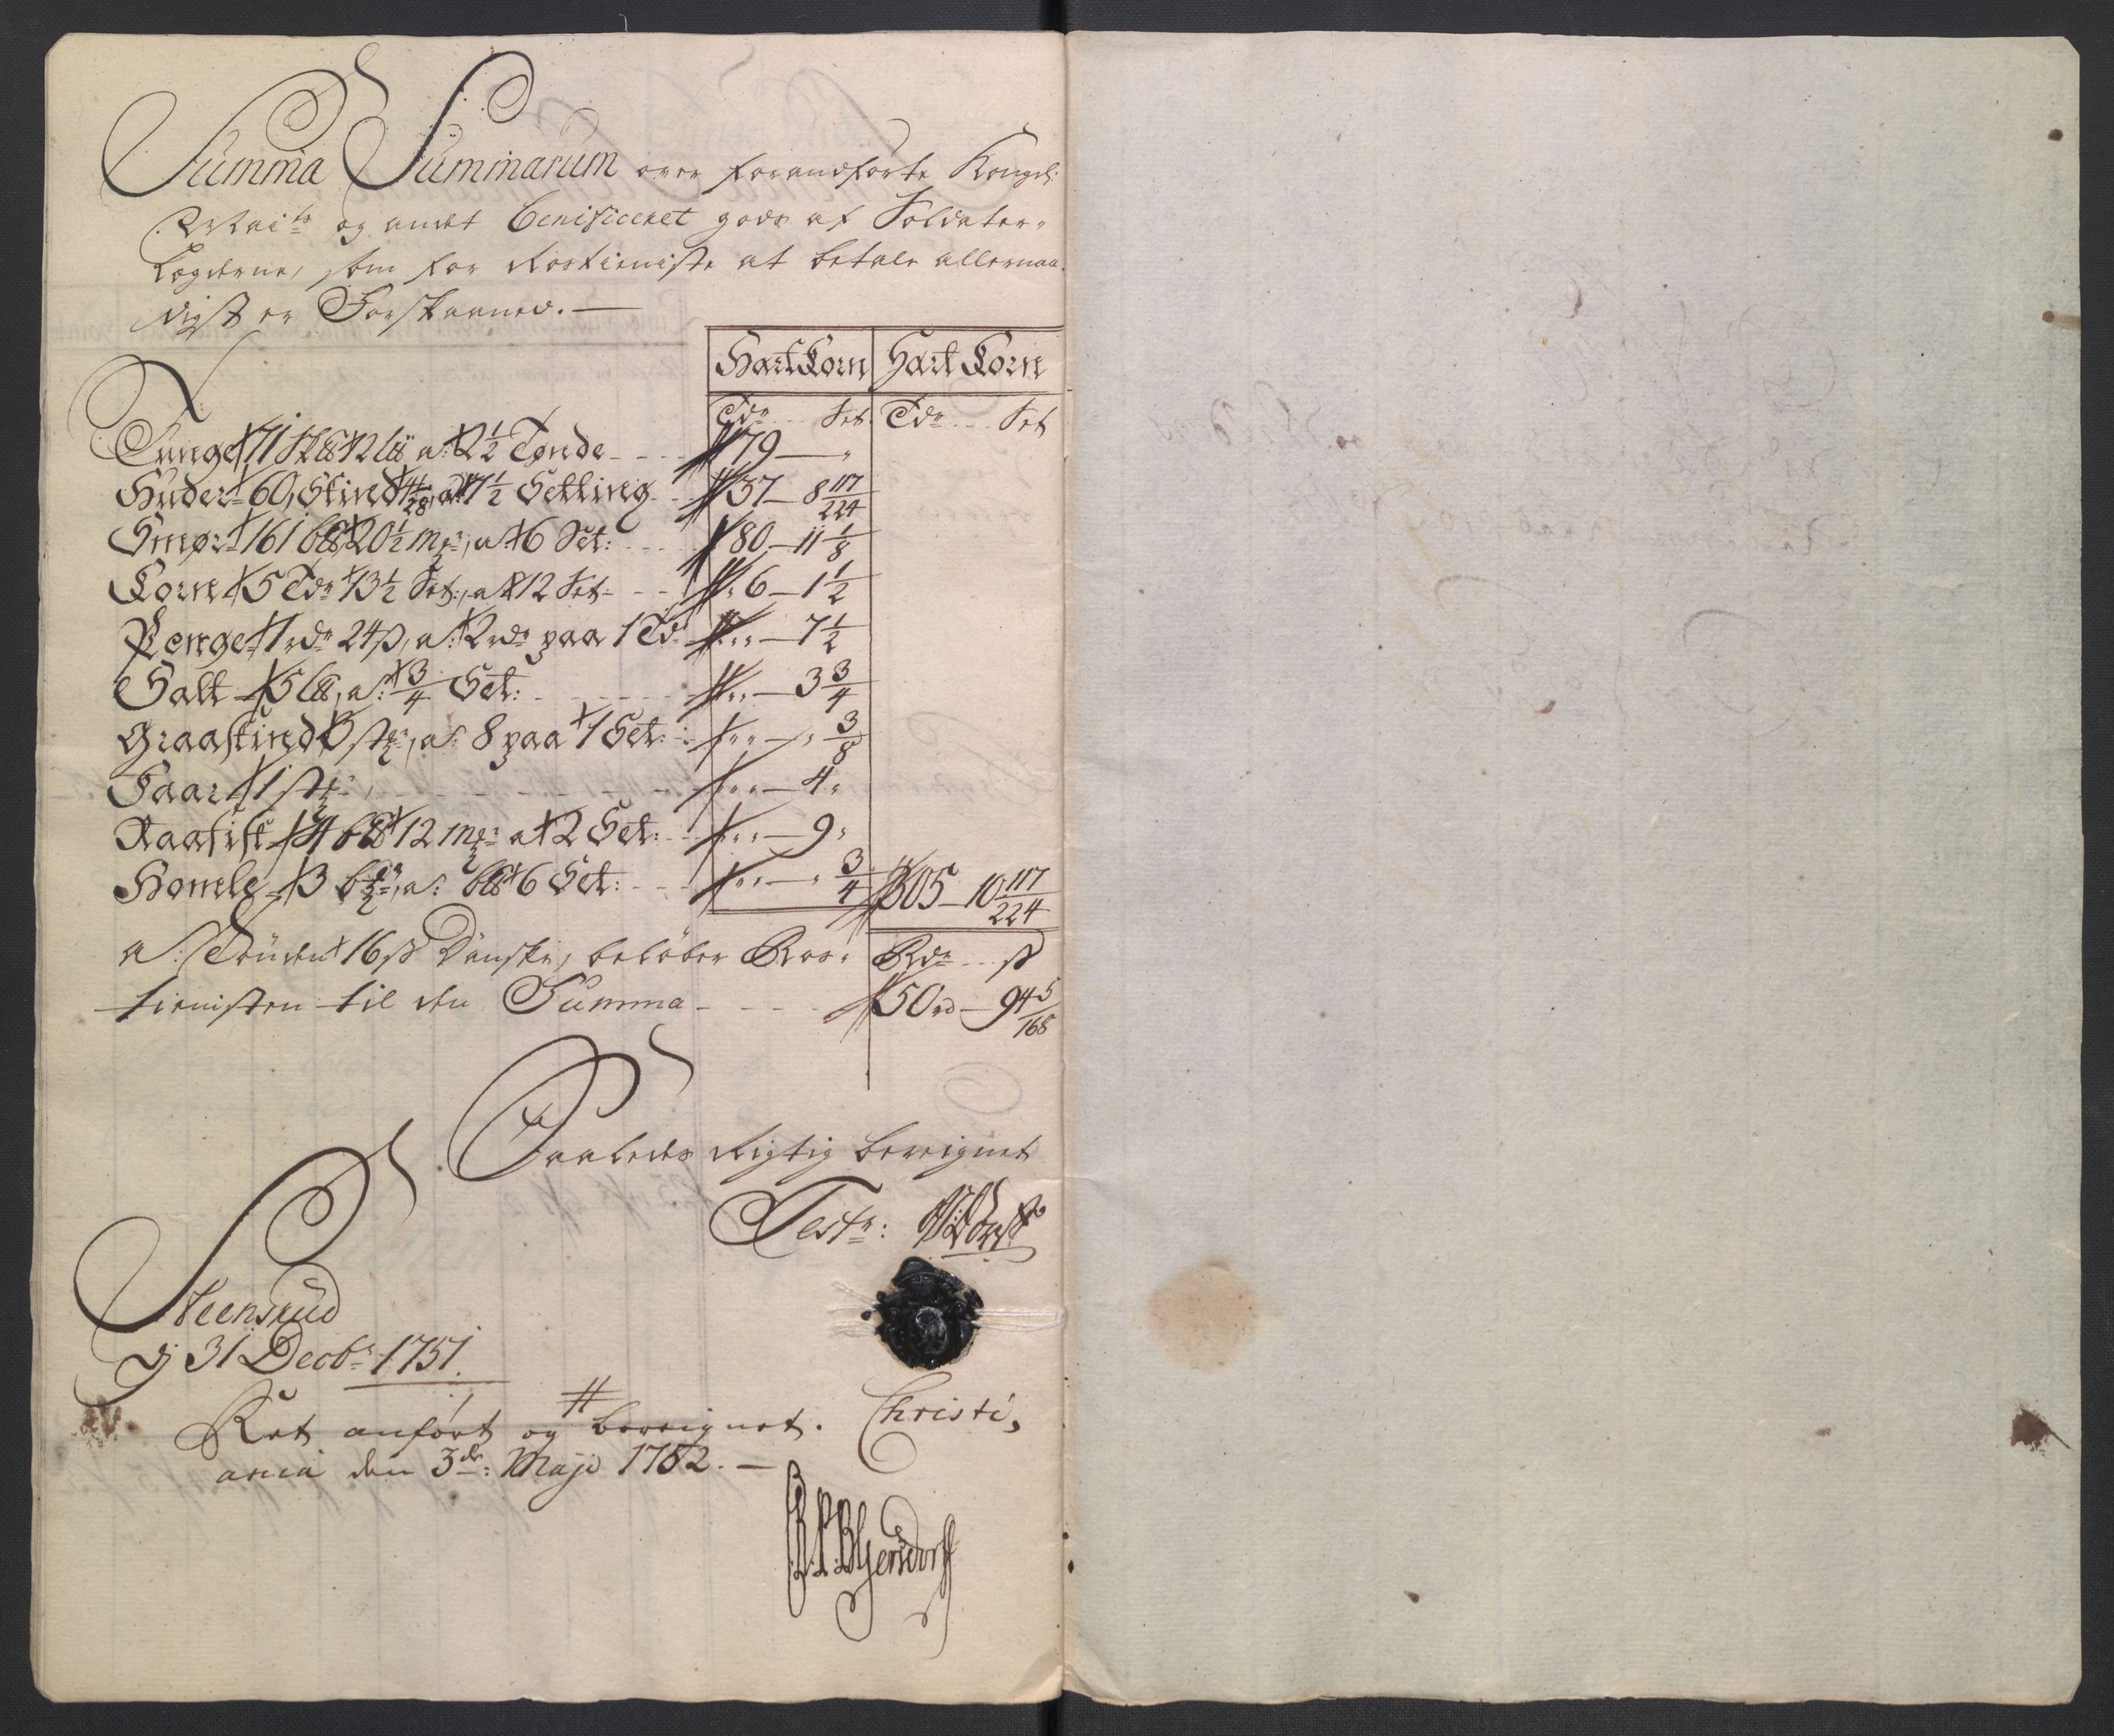 Summa Summarum over foranførte Kongel:
May:ts og andet beneficeret gods af Soldater-
Legderne, som for Rostieniste at betale allernaa-
digst er Forskaaned. —
HartKorn Hart Korn
Tdr Set. Tdr Set
Tunge 71 12 a: 2½ Tønde 179 — "
Huder 60, Skind 4/28, a: 7½ Setting 37 — 8 117/224
Smør 161 20½ mkr, a: 6 Set: 80 — 11 1/8
Korn 5 Tdr 13½ Set:, a 12 Set: 6 — 1½
Penge 1 rdr 24 ß, a: 2 rdr paa 1 Td: " — 7½
Salt 5 a: ¾ Set: " — 3¾
Graaskind 3 stkr, a: 8 paa 1 Set: " — " 3/8
Faar 1 stk: " — 4 "
Raafisk 4 12 mkr a 2 Set: " — 9 "
Homle 3 a: 6 Set: " — " ¾ 305 — 10 117/224
a: Tønden 16 ß Danske, beløber Ros- Rdr ß
tienisten til den Summa 50 rd — 94 5/168
Saaledes Rigtig bereignet
Test:
Steensrud
dj 31 Decbr 1751.
Ret anført og bereignet. Christi,
ania den 3de: Maji 1752. —